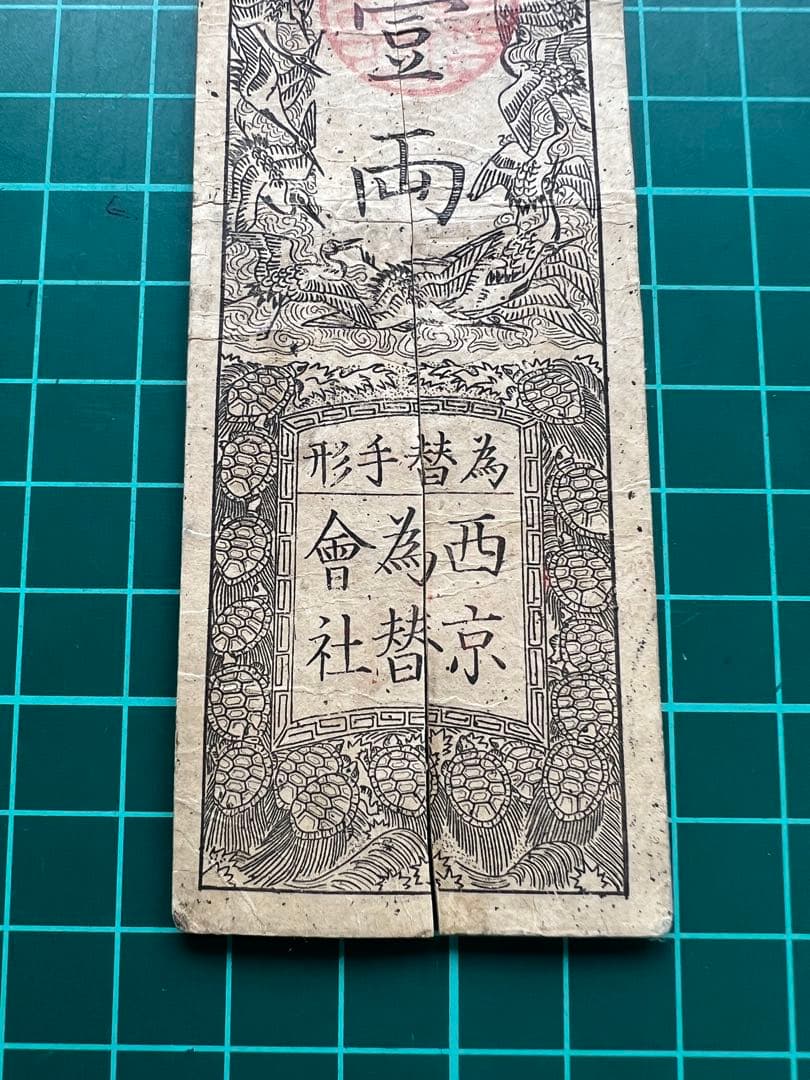 壹両
為替手形
西京
為替
會社